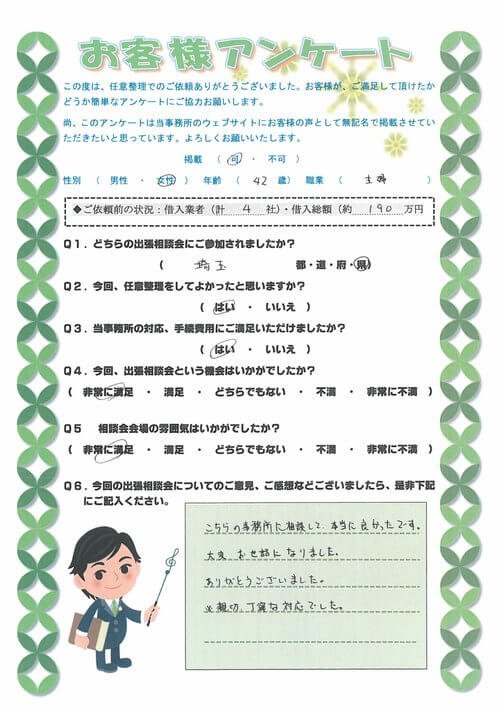 お客様アンケート
この度は、任意整理でのご依頼ありがとうございました。お客様が、ご満足して頂けたか
どうか簡単なアンケートにご協力お願いします。
尚、このアンケートは当事務所のウェブサイトにお客様の声として無記名で掲載させてい
ただきたいと思っています。よろしくお願いいたします。
掲載 （ 可 ・ 不可 ）
性別 （ 男性 ・ 女性 ） 年齢 （ 42 歳） 職業 （ 主婦 ）
◆ご依頼前の状況：借入業者（計 4 社）・借入総額（約 190 万円
Q1．どちらの出張相談会にご参加されましたか？
（ 埼玉 都・道・府・県）
Q2．今回、任意整理をしてよかったと思いますか？
（ はい ・ いいえ ）
Q3．当事務所の対応、手続費用にご満足いただけましたか？
（ はい ・ いいえ ）
Q4．今回、出張相談会という機会はいかがでしたか？
（ 非常に満足 ・ 満足 ・ どちらでもない ・ 不満 ・ 非常に不満 ）
Q5 相談会会場の雰囲気はいかがでしたか？
（ 非常に満足 ・ 満足 ・ どちらでもない ・ 不満 ・ 非常に不満 ）
Q6．今回の出張相談会についてのご意見、ご感想などございましたら、是非下記
にご記入ください。
こちらの事務所に相談して、本当に良かったです。
大変お世話になりました。
ありがとうございました。
※親切、丁寧な対応でした。